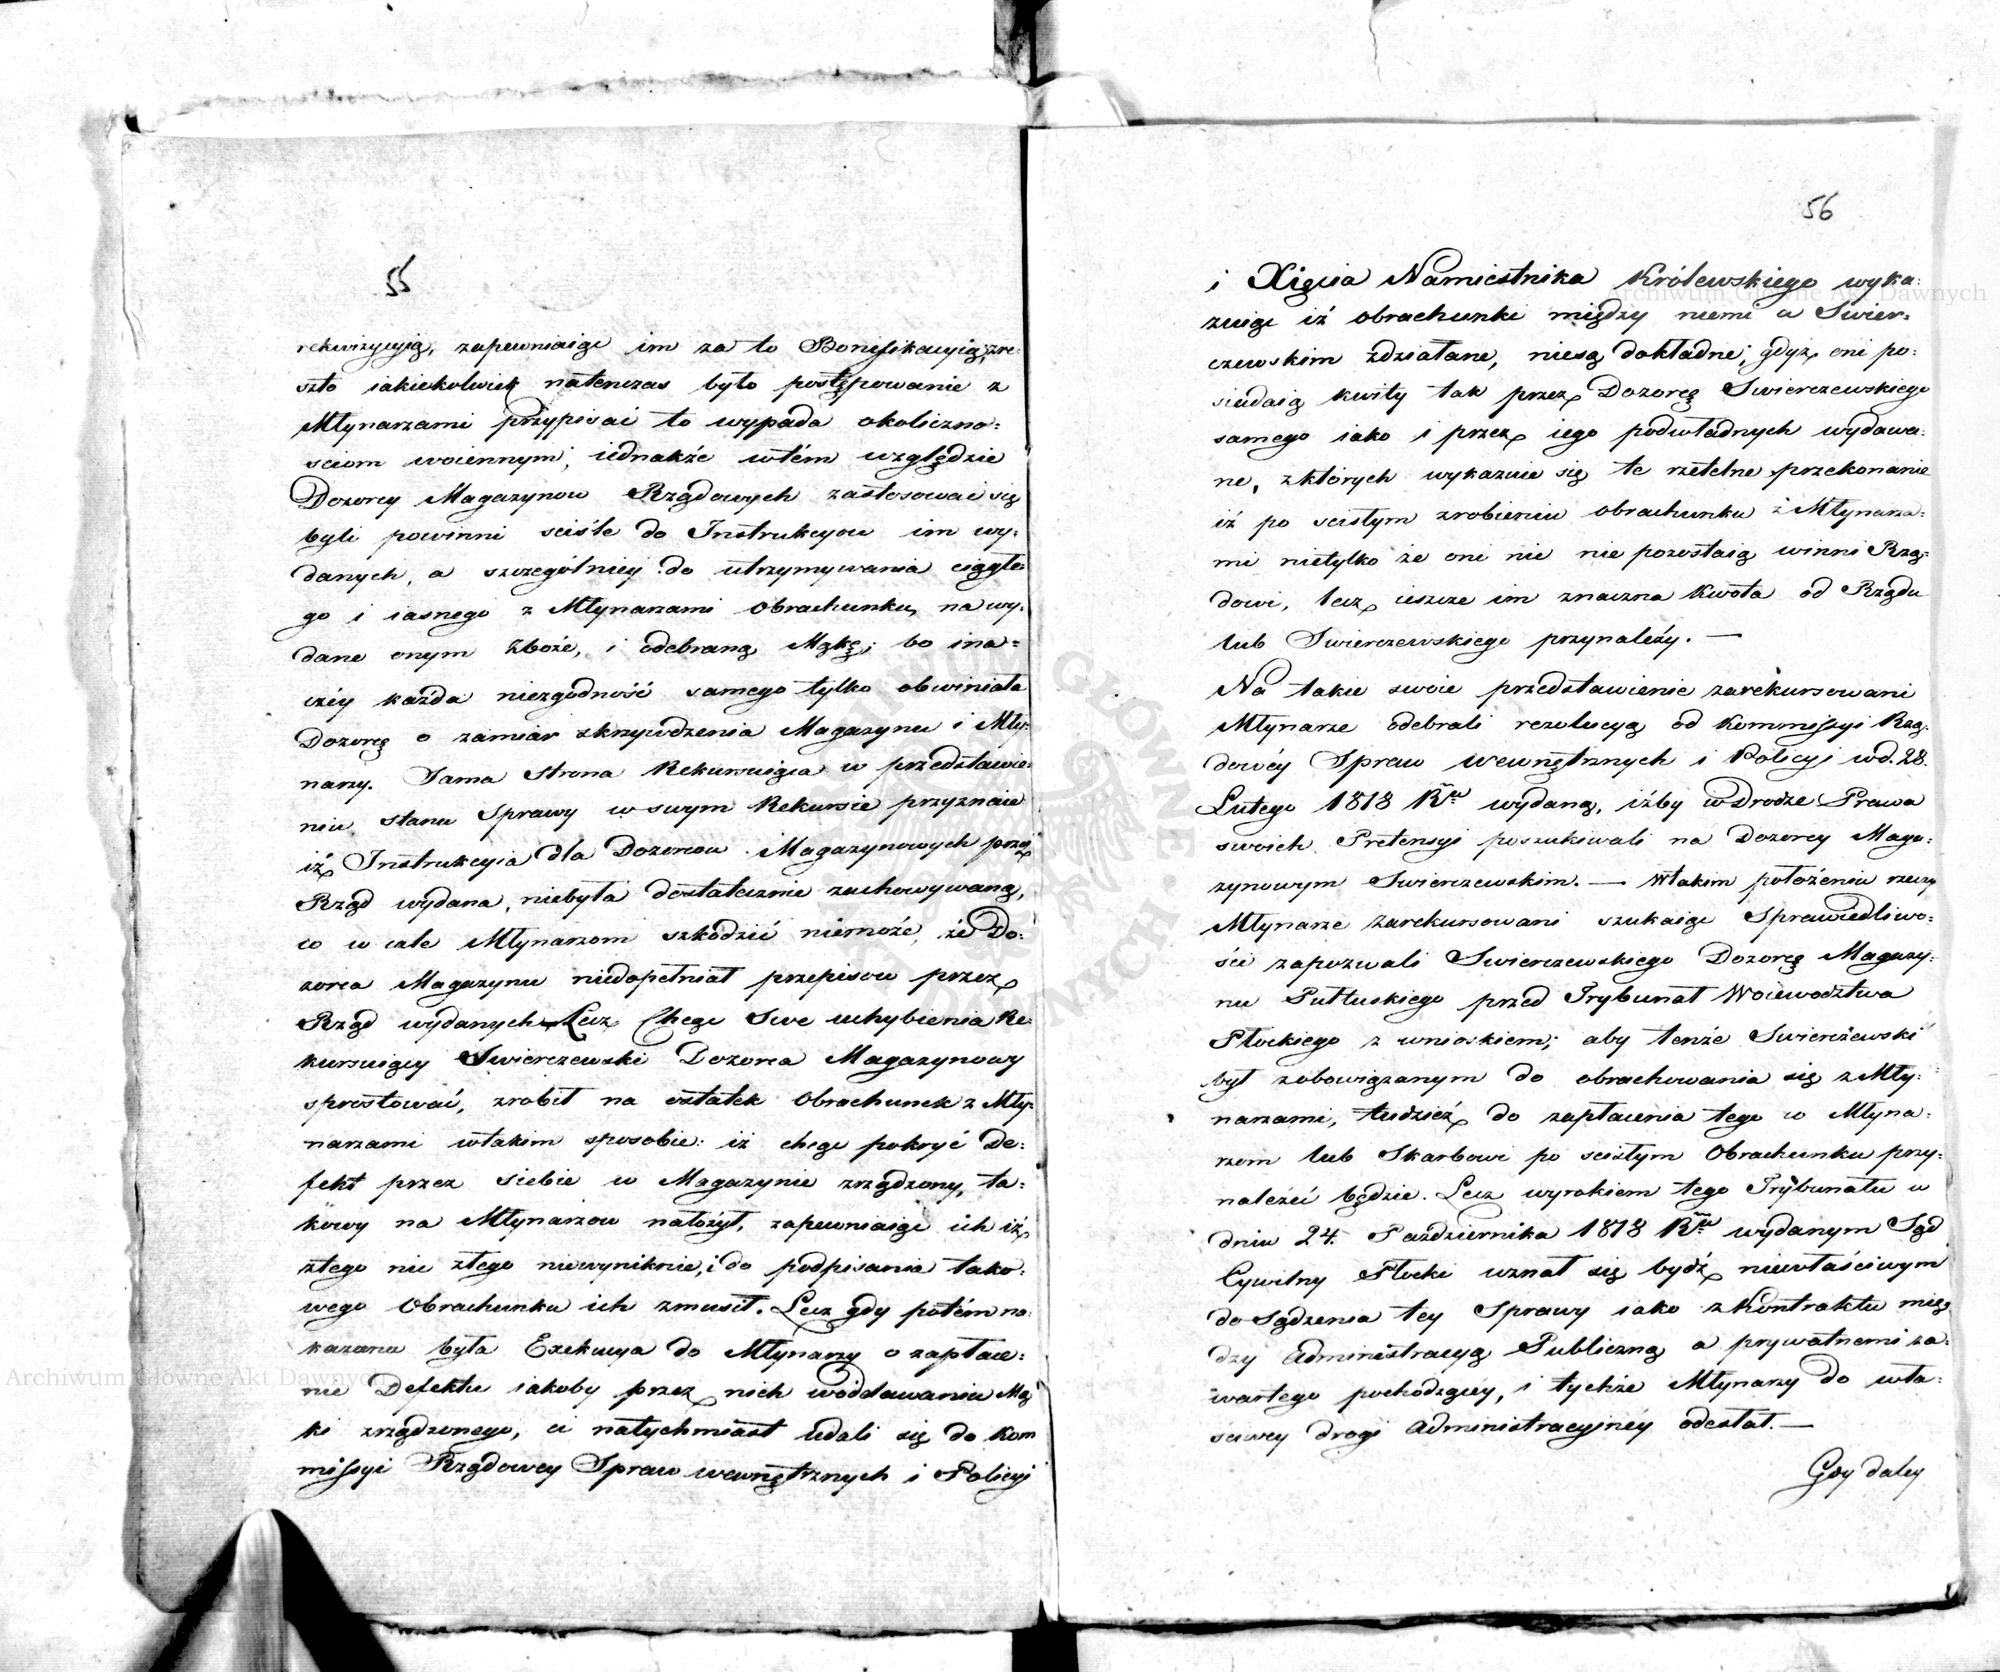 55
rekwizycyią, zapewniaiąc im za to Bonifikacyią, zre:
sztą iakiekolwiek natenczas było postępowanie z
Młynarzami przypisać to wypada okoliczno:
sciom woiennym, iednakże wtém względzie
Dozorcy Magazynow Rządowych zastosować się
byli powinni sciśle do Instrukcyow im wy:
danych, a szczególniey do utrzymywania ciągłe
go i iasnego z Młynarzami Obrachunku, na wy:
dane onym Zboże, i odebraną Mąkę; bo ina:
czéy każda niezgodność samego tylko obwiniała
Dozorcę o zamiar skrzywdzenia Magazynu i Mły:
narzy. Sama Strona Rekursuiąca w przedstawie:
niu stanu Sprawy w swym Rekursie przyznaie
iż Instrukcyia dla Dozorcow Magazynowych przez
Rząd wydana, niebyła dostatecznie zachowywaną,
co w cale Młynarzom szkodzić niemoże, że Do:
zorca Magazynu niedopełniał przepisow przez
Rząd wydanych. Lecz Chcąc Swe uchybienia Re:
kursuiący Swierczewski Dozorca Magazynowy
sprostować, zrobił na ostatek Obrachunek z Mły:
narzami wtakim sposobie: iż chcąc pokryć De:
fekt przez siebie w Magazynie zrządzony, ta:
kowy na Młynarzow nałożył, zapewniaiąc ich iż
ztego nic złego niewyniknie, i do podpisania tako:
wego Obrachunku ich zmusił. Lecz gdy potém na:
kazana była Exekucya do Młynarzy o zapłace:
nie Defektu iakoby przez nich woddawaniu Mą
ki zrządzonego, ci natychmiast udali się do Kom
missyi Rządowey Spraw wewnętrznych i Policyi
56
i Xięcia Namiestnika Królewskiego wyka:
zuiąc iż obrachunki między niemi a Swier:
czewskim zdziałane, niesą dokładne; gdyż oni po:
siadaią kwity tak przez Dozorcę Swierczewskiego
samego iako i przez iego podwładnych wydawa:
ne, zktórych wykazuie się te rzetelne przekonanie
iż po scisłym zrobieniu obrachunku z Młynarza:
mi nietylko że oni nic nie pozostaią winni Rzą:
dowi, lecz ieszcze im znaczna Kwota od Rządu
lub Swierczewskiego przynależy. —
Na takie swoie przedstawienie zarekursowani
Młynarze odebrali rezolucyą od Kommissyi Rzą:
dowéy Spraw wewnętrznych i Policyi w d. 28.
Lutego 1818 Ru wydaną, iżby w Drodze Prawa
swoich Pretensyi poszukiwali na Dozorcy Maga:
zynowym Swierczewskim. — Wtakim położeniu rzeczy
Młynarze zarekursowani szukaiąc Sprawiedliwo:
ści zapozwali Swierczewskiego Dozorcę Magazy:
nu Pułtuskiego przed Trybunał Woiewodztwa
Płockiego z wnioskiem; aby tenże Swierczewski
był zobowiązanym do obrachowania się z Mły:
narzami, tudzież do zapłacenia tego co Młyna:
rzom lub Skarbowi po scisłym Obrachunku przy:
należeć będzie. Lecz wyrokiem tego Trybunału w
dniu 24. Października 1818 Ru wydanym Sąd
Cywilny Płocki uznał się bydź niewłaściwym
do sądzenia tey Sprawy iako z Kontraktu mię
dzy Administracyą Publiczną a prywatnemi za:
wartego pochodzącéy, i tychże Młynarzy do wła:
ściwey drogi administracyjnéy odesłał. —
Gdy daley
Archiwum Główne Akt Dawnych
Archiwum Główne Akt Dawnych
ARCHIWUM GŁÓWNE AKT DAWNYCH